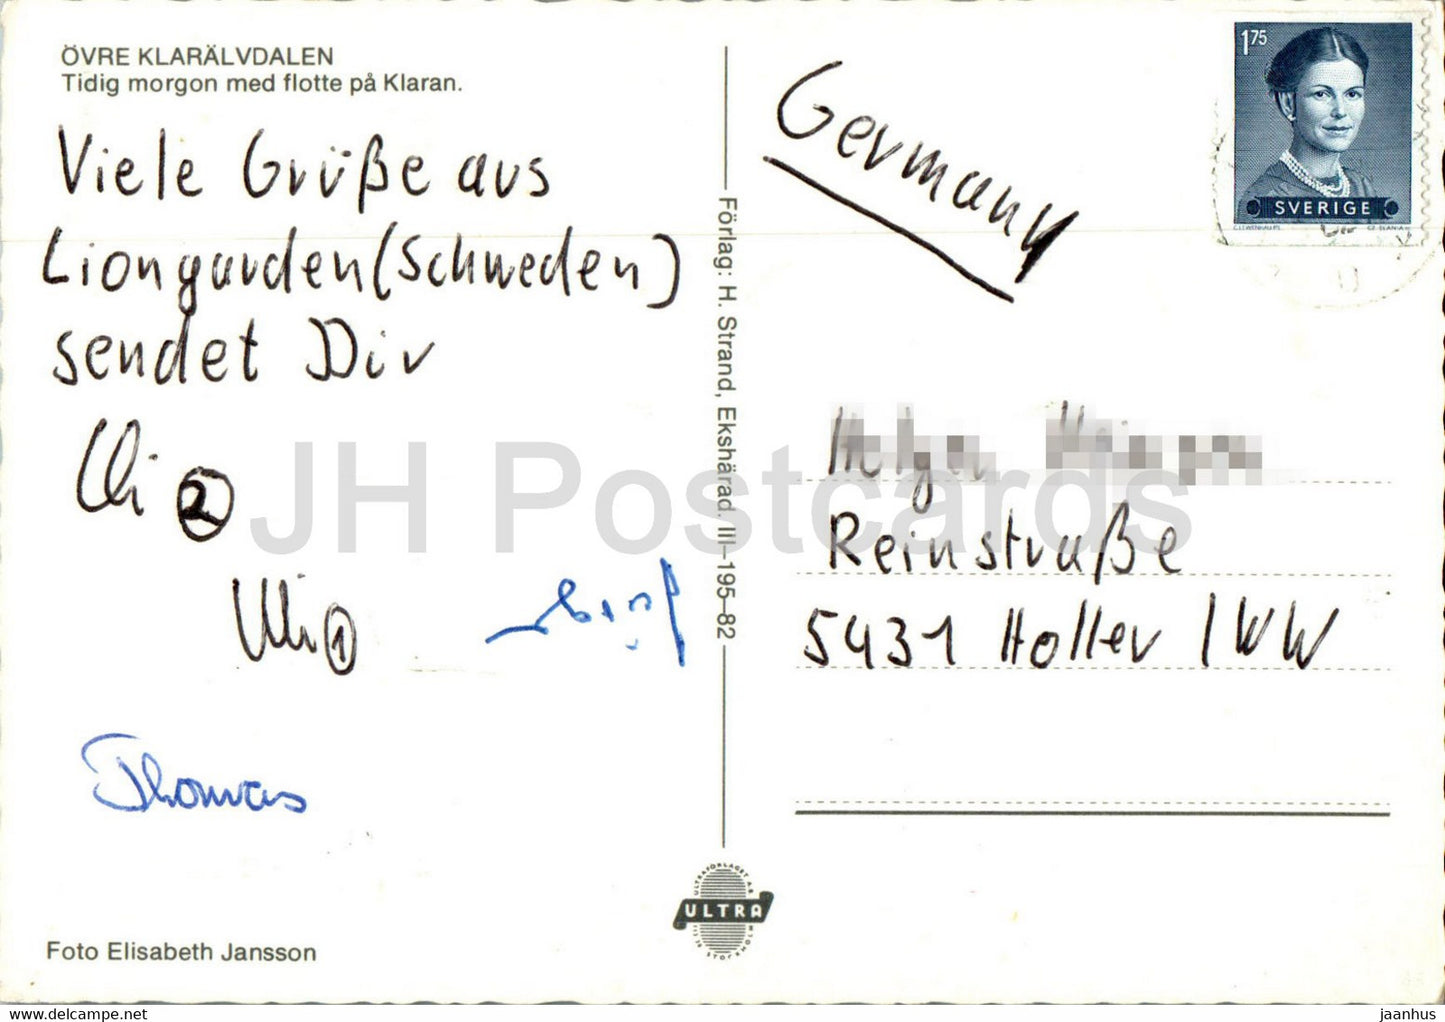 ÖVRE KLARÄLVDALEN
Tidig morgon med flotte på Klaran.
Viele Grüße aus
Liongarden (Schweden)
sendet Dir
Uli 2
Uli 1
Thomas
Foto Elisabeth Jansson
Förlag: H. Strand, Ekshärad. III–195–82
ULTRA
Germany
1 75
SVERIGE
Helga
Reinstraße
5431 Holler / WW
JH Postcards
hip.com
jaanhus